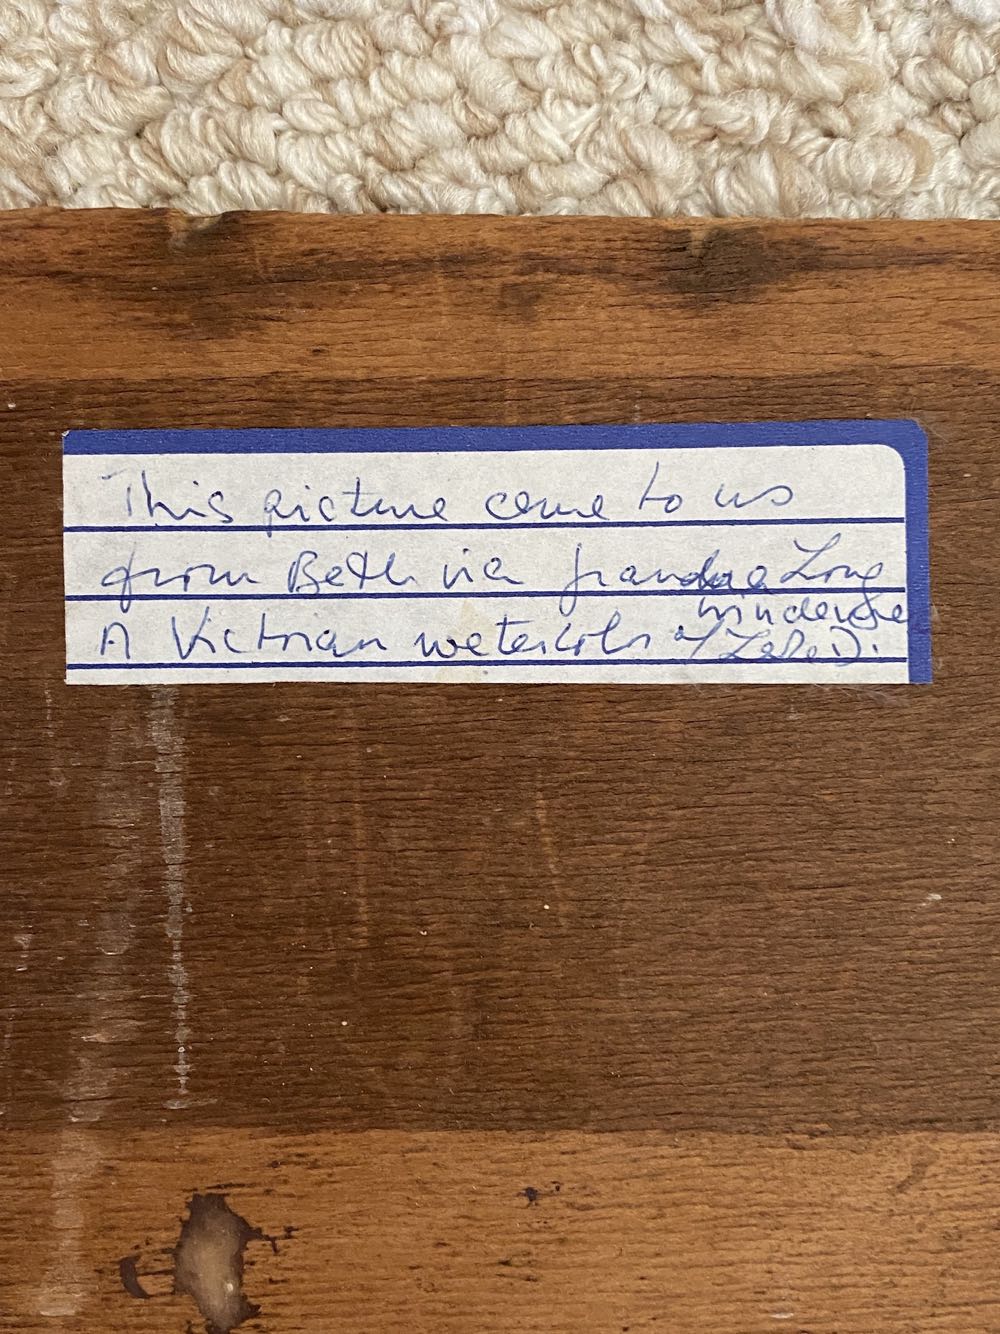 This picture came to us
from Beth via grandma Long
A Victorian watercolor of